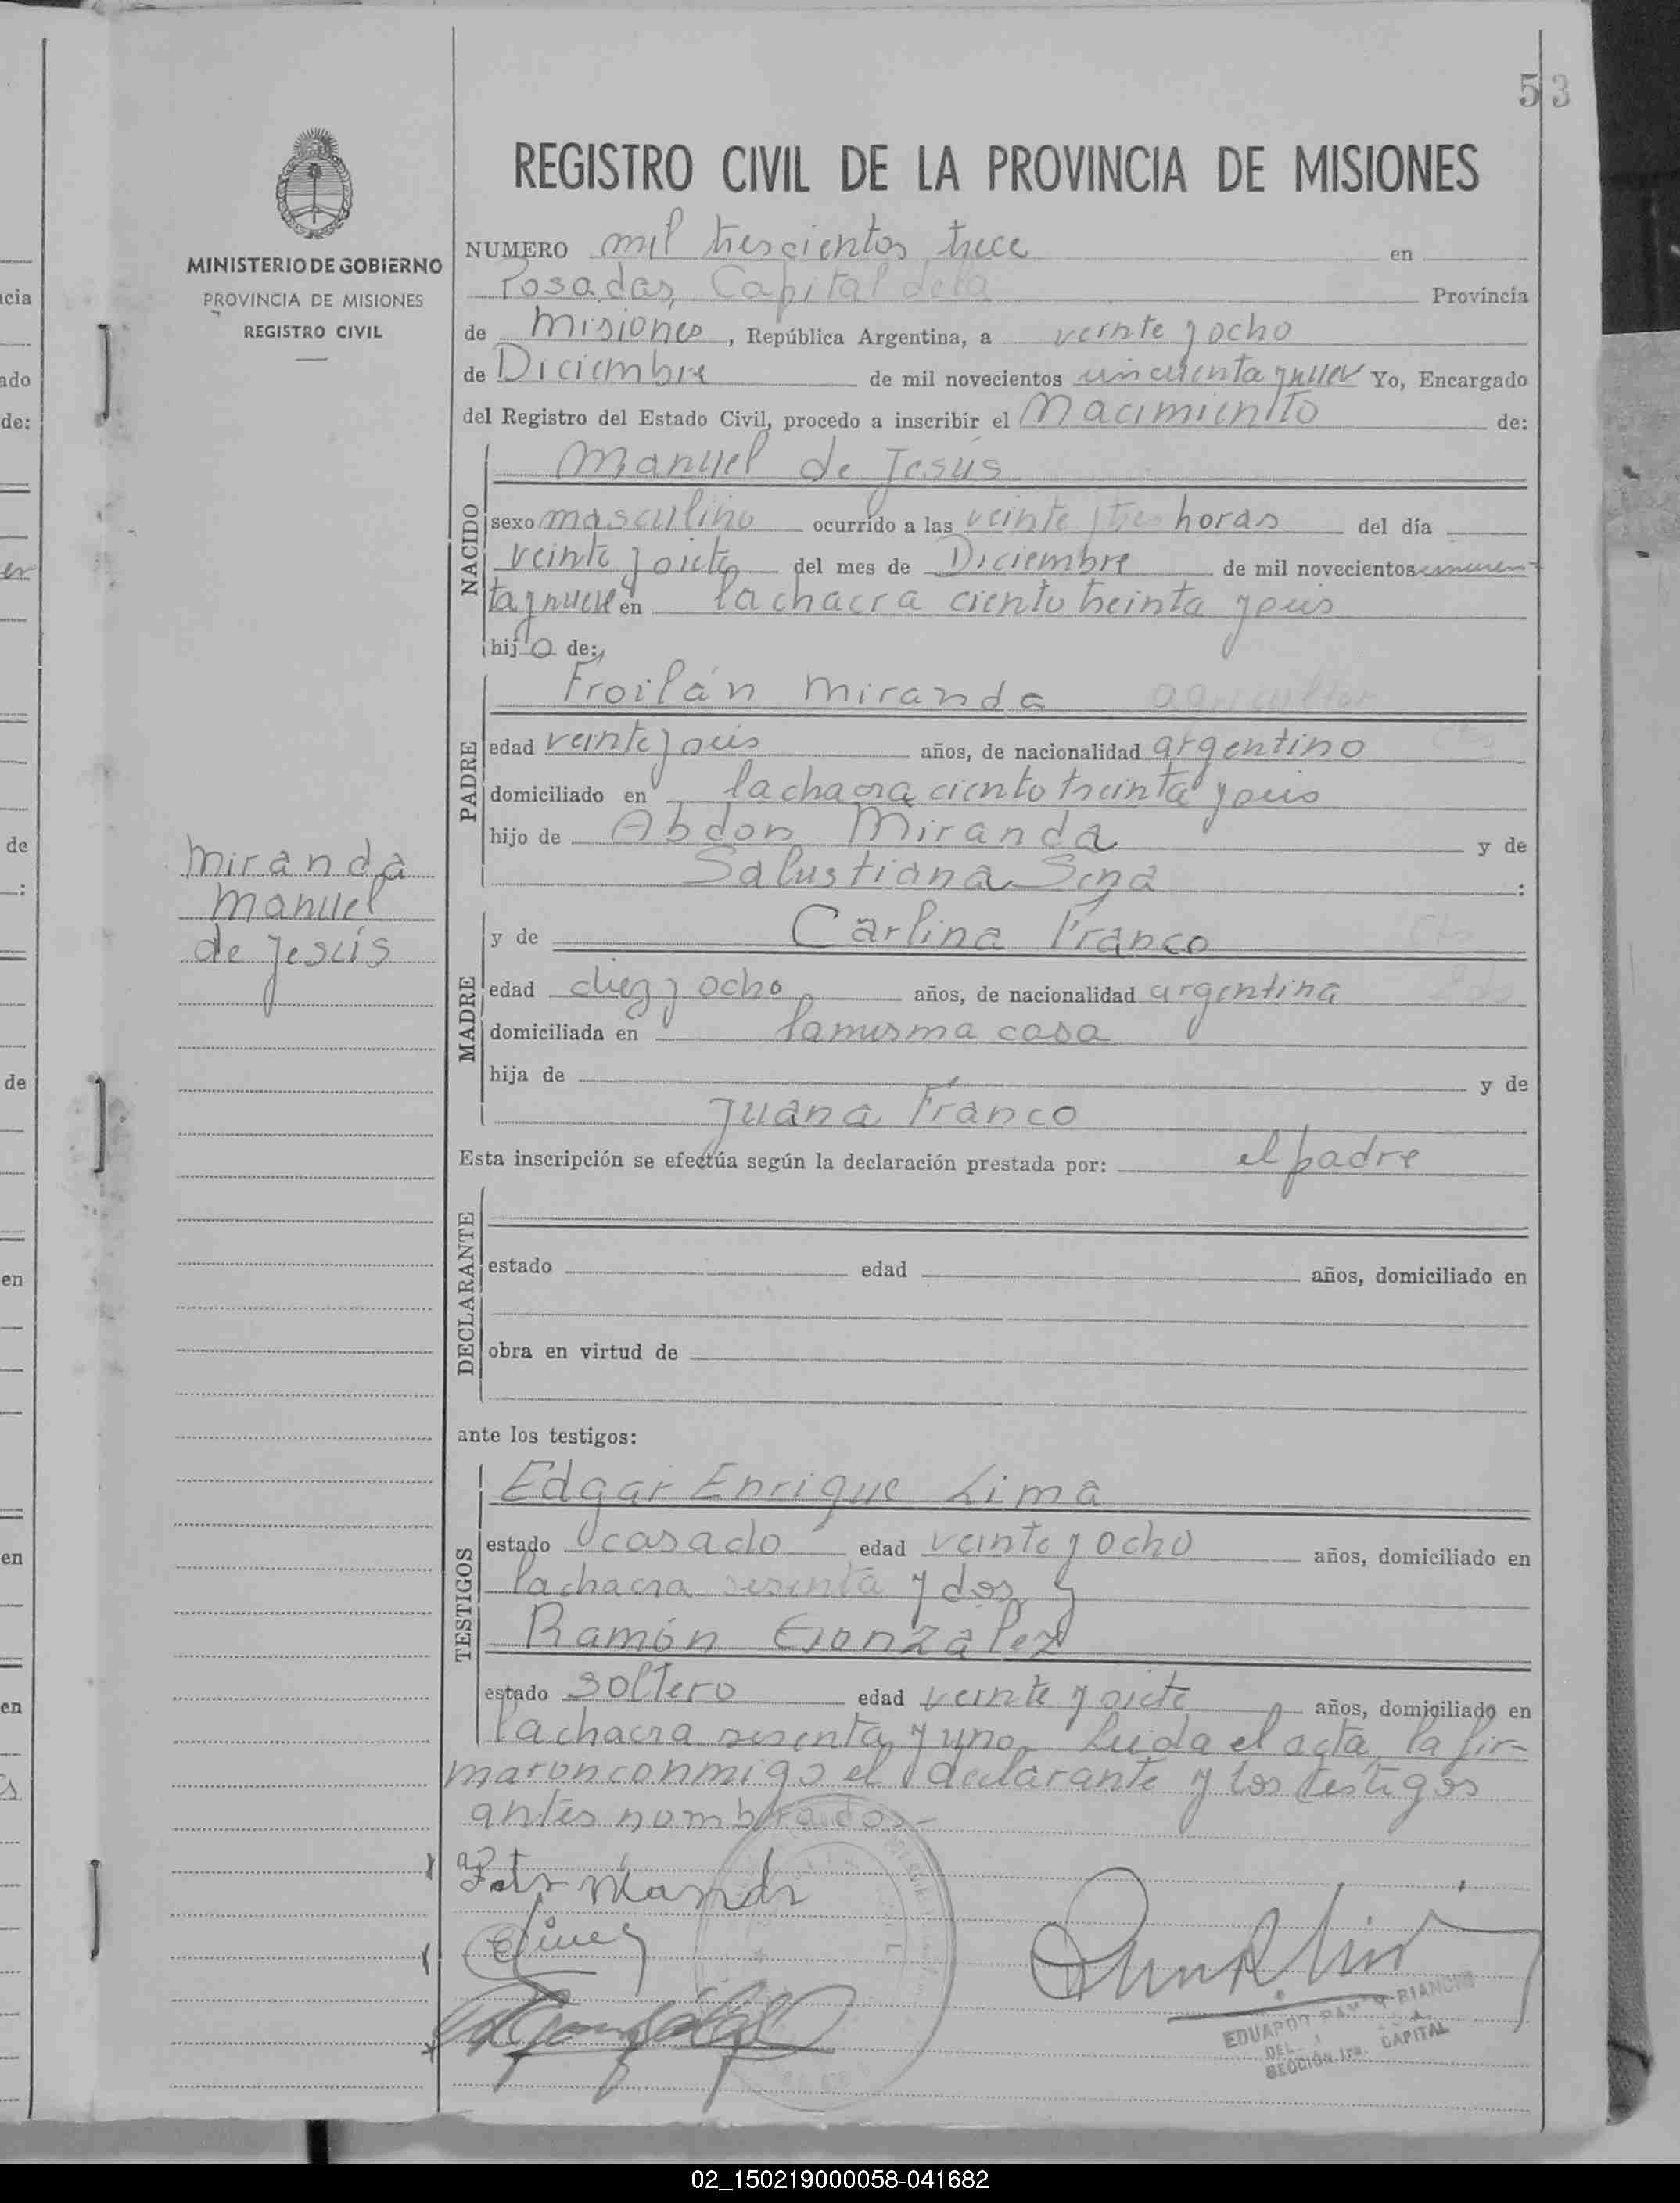 53
REGISTRO CIVIL DE LA PROVINCIA DE MISIONES
MINISTERIO DE GOBIERNO
PROVINCIA DE MISIONES
REGISTRO CIVIL
NUMERO mil trescientos trece en
Posadas, Capital de la Provincia
de Misiones, República Argentina, a veinte y ocho
de Diciembre de mil novecientos cincuenta y nueve Yo, Encargado
del Registro del Estado Civil, procedo a inscribir el Nacimiento de:
NACIDO
Manuel de Jesús
sexo masculino ocurrido a las veinte y tres horas del día
veinte y siete del mes de Diciembre de mil novecientos cincuen-
ta y nueve en la chacra ciento treinta y seis
hijo de:
PADRE
Froilán Miranda agricultor
edad veinte y seis años, de nacionalidad argentino
domiciliado en la chacra ciento treinta y seis
hijo de Abdon Miranda y de
Salustiana :
Miranda
Manuel
de Jesús
MADRE
y de Carlina Franco
edad diez y ocho años, de nacionalidad argentina
domiciliada en la misma casa
hija de y de
Juana Franco
Esta inscripción se efectúa según la declaración prestada por: el padre
DECLARANTE
estado edad años, domiciliado en
obra en virtud de
ante los testigos:
TESTIGOS
Edgar Enrique Lima
estado casado edad veinte y ocho años, domiciliado en
la chacra sesenta y dos y
Ramón González
estado soltero edad veinte y siete años, domiciliado en
la chacra sesenta y uno. Leida el acta, la fir-
maron conmigo el declarante y los testigos
antes nombrados.-
EDUARDO RAMON BIANCHI
DEL
SECCIÓN 1ra. CAPITAL
02_150219000058-041682